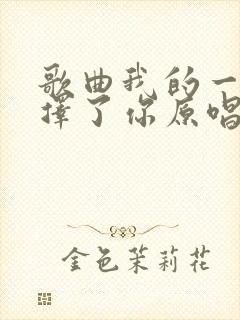 歌曲我的一
择了你原唱
金色茉莉花